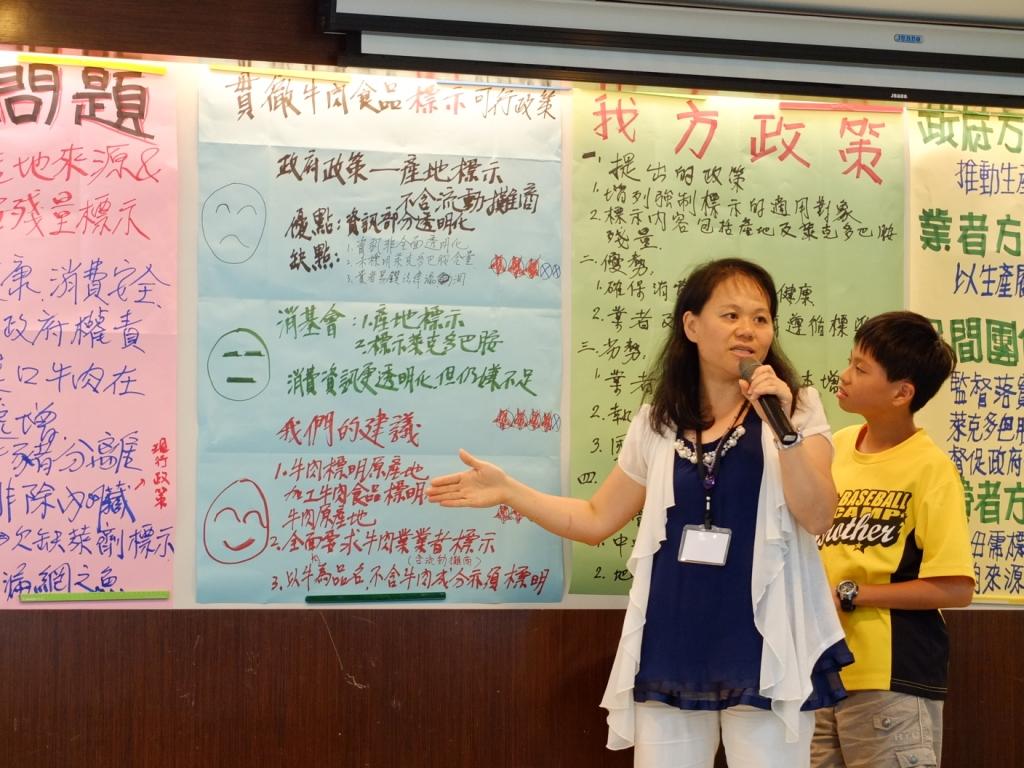 問題
產地來源&
殘量標示
康.消費安全.
政府權責
口牛肉在
增
豬分離
排除內臟
欠缺萊劑標示
漏網之魚
現行政策
貫徹牛肉食品標示可行政策
政府政策—產地標示
不含流動攤商
優點:資訊部分透明化
缺點:
1.資訊非全面透明化
2.未標明萊克多巴胺含量
3.業者易鑽法律漏洞
消基會:1.產地標示
2.標示萊克多巴胺
消費資訊更透明化,但仍嫌不足
我們的建議
1.牛肉標明原產地
加工牛肉食品標明
牛肉原產地
2.全面要求牛肉業業者標示
(含流動攤商)
3.以牛為品名,不含牛肉成分亦須標明
我方政策
一.提出的政策
1.增列強制標示的適用對象
2.標示內容包括產地及萊克多巴胺
殘量.
二.優勢.
1.確保消 健康
2.業者 遵循標
三.劣勢.
1.業者 增
2.
3.
四.
1.中
2.地
政府方
推動生產
業者方
以生產履
民間團
監督落實
萊克多巴胺
督促政府
學者方
的來源
BASEBALL
CAMP
Brother